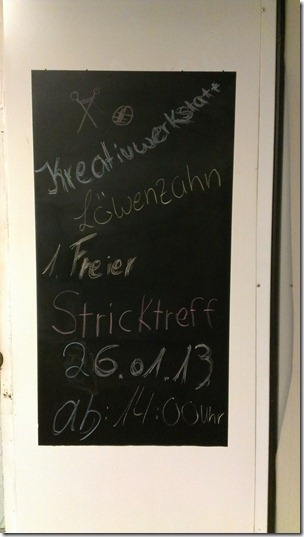 Kreativwerkstatt
Löwenzahn
1. Freier
Stricktreff
26.01.13
ab: 14:00 Uhr